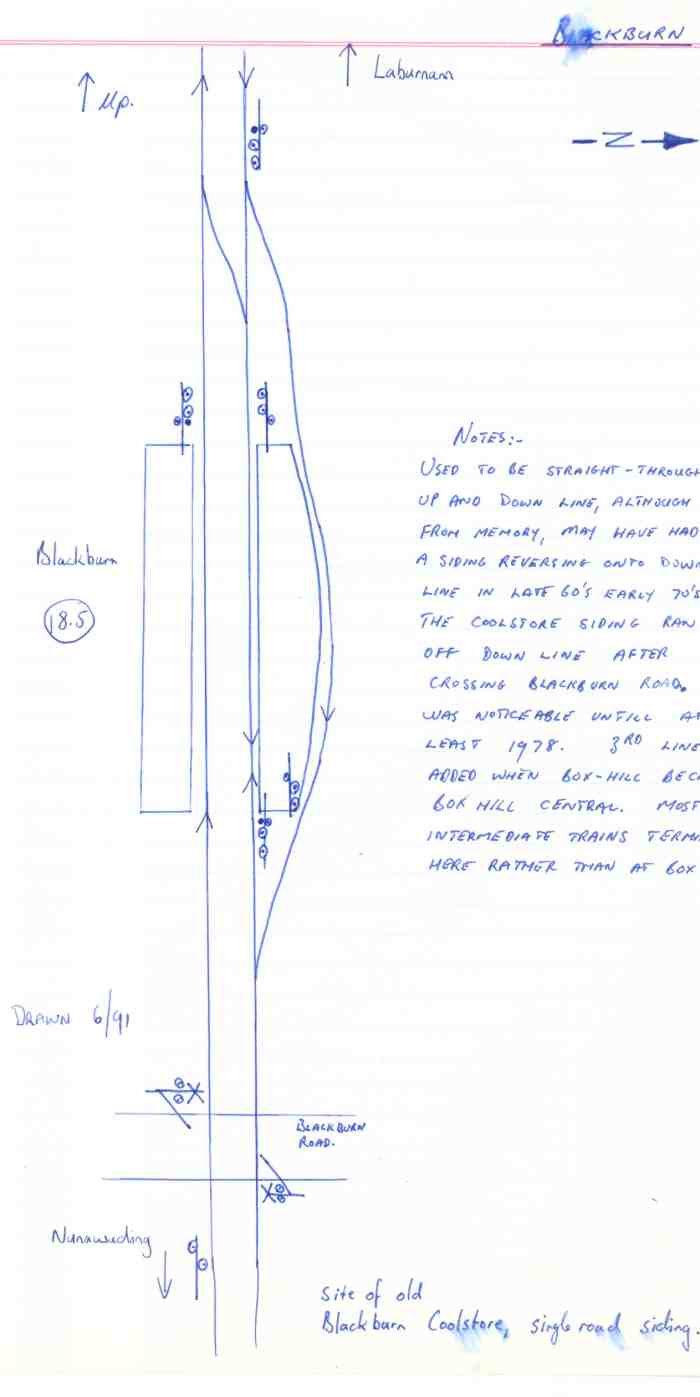 BLACKBURN
↑ Up.
↑ Laburnam
N
NOTES:-
USED TO BE STRAIGHT-THROUGH
UP AND DOWN LINE, ALTHOUGH
FROM MEMORY, MAY HAVE HAD
A SIDING REVERSING ONTO DOWN
LINE IN LATE 60'S EARLY 70'S
THE COOLSTORE SIDING RAN
OFF DOWN LINE AFTER
CROSSING BLACKBURN ROAD.
WAS NOTICEABLE UNTILL AT
LEAST 1978. 3RD LINE
ADDED WHEN BOX-HILL BECA
BOX HILL CENTRAL. MOST
INTERMEDIATE TRAINS TERMI
HERE RATHER THAN AT BOX
Blackburn
18.5
DRAWN 6/91
BLACKBURN
ROAD.
Nunawading
Site of old
Blackburn Coolstore, single road siding.